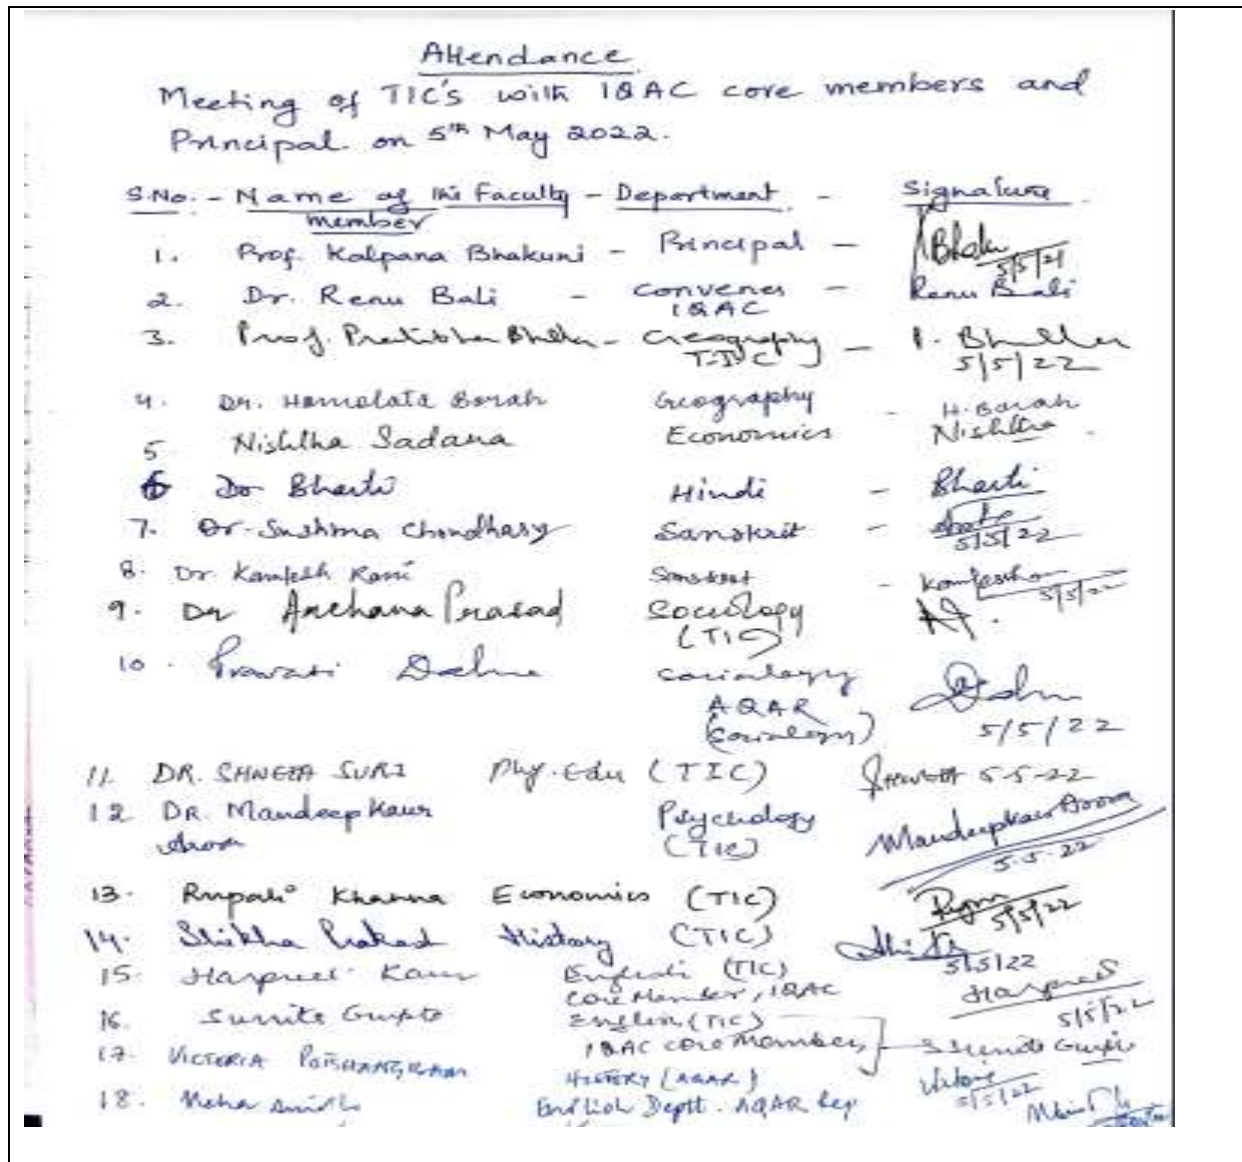 Attendance
Meeting of TIC's with IQAC core members and
Principal on 5th May 2022.
S.No. - Name of the Faculty - Department - Signature
member
1. Prof. Kalpana Bhakuni - Principal -
5/5/21
2. Dr. Renu Bali - Convener - Renu Bali
IQAC
3. Prof. Pratibha - Geography - P.
TIC 5/5/22
4. Dr. Hemolata Borah Geography - H. Borah
5 Nishtha Sadana Economics Nishtha
6 Dr Bharti Hindi - Bharti
7. Dr. Sushma Choudhary Sanskrit -
5/5/22
8. Dr. Kamlesh Rani Sanskrit - Kamlesh
5/5/22
9. Dr Archana Prasad Sociology
(TIC)
10. Pravati Sociology
AQAR
(Sociology) 5/5/22
11. DR. SHNEZA SURI Phy. Edu (TIC) 5-5-22
12 DR. Mandeep Kaur Psychology Mandeepkaur Arora
Arora (TIC) 5-5-22
13. Rupali Khanna Economics (TIC)
5/5/22
14. Shikha Prakash History (TIC)
5/5/22
15. Harpreet Kaur English (TIC) Harpreet
Core Member, IQAC 5/5/22
16. Sunita Gupta English (TIC)
IQAC core Member, Sunita Gupta
17. VICTORIA HISTORY (AQAR)
5/5/22
18. Neha English Deptt. AQAR Rep